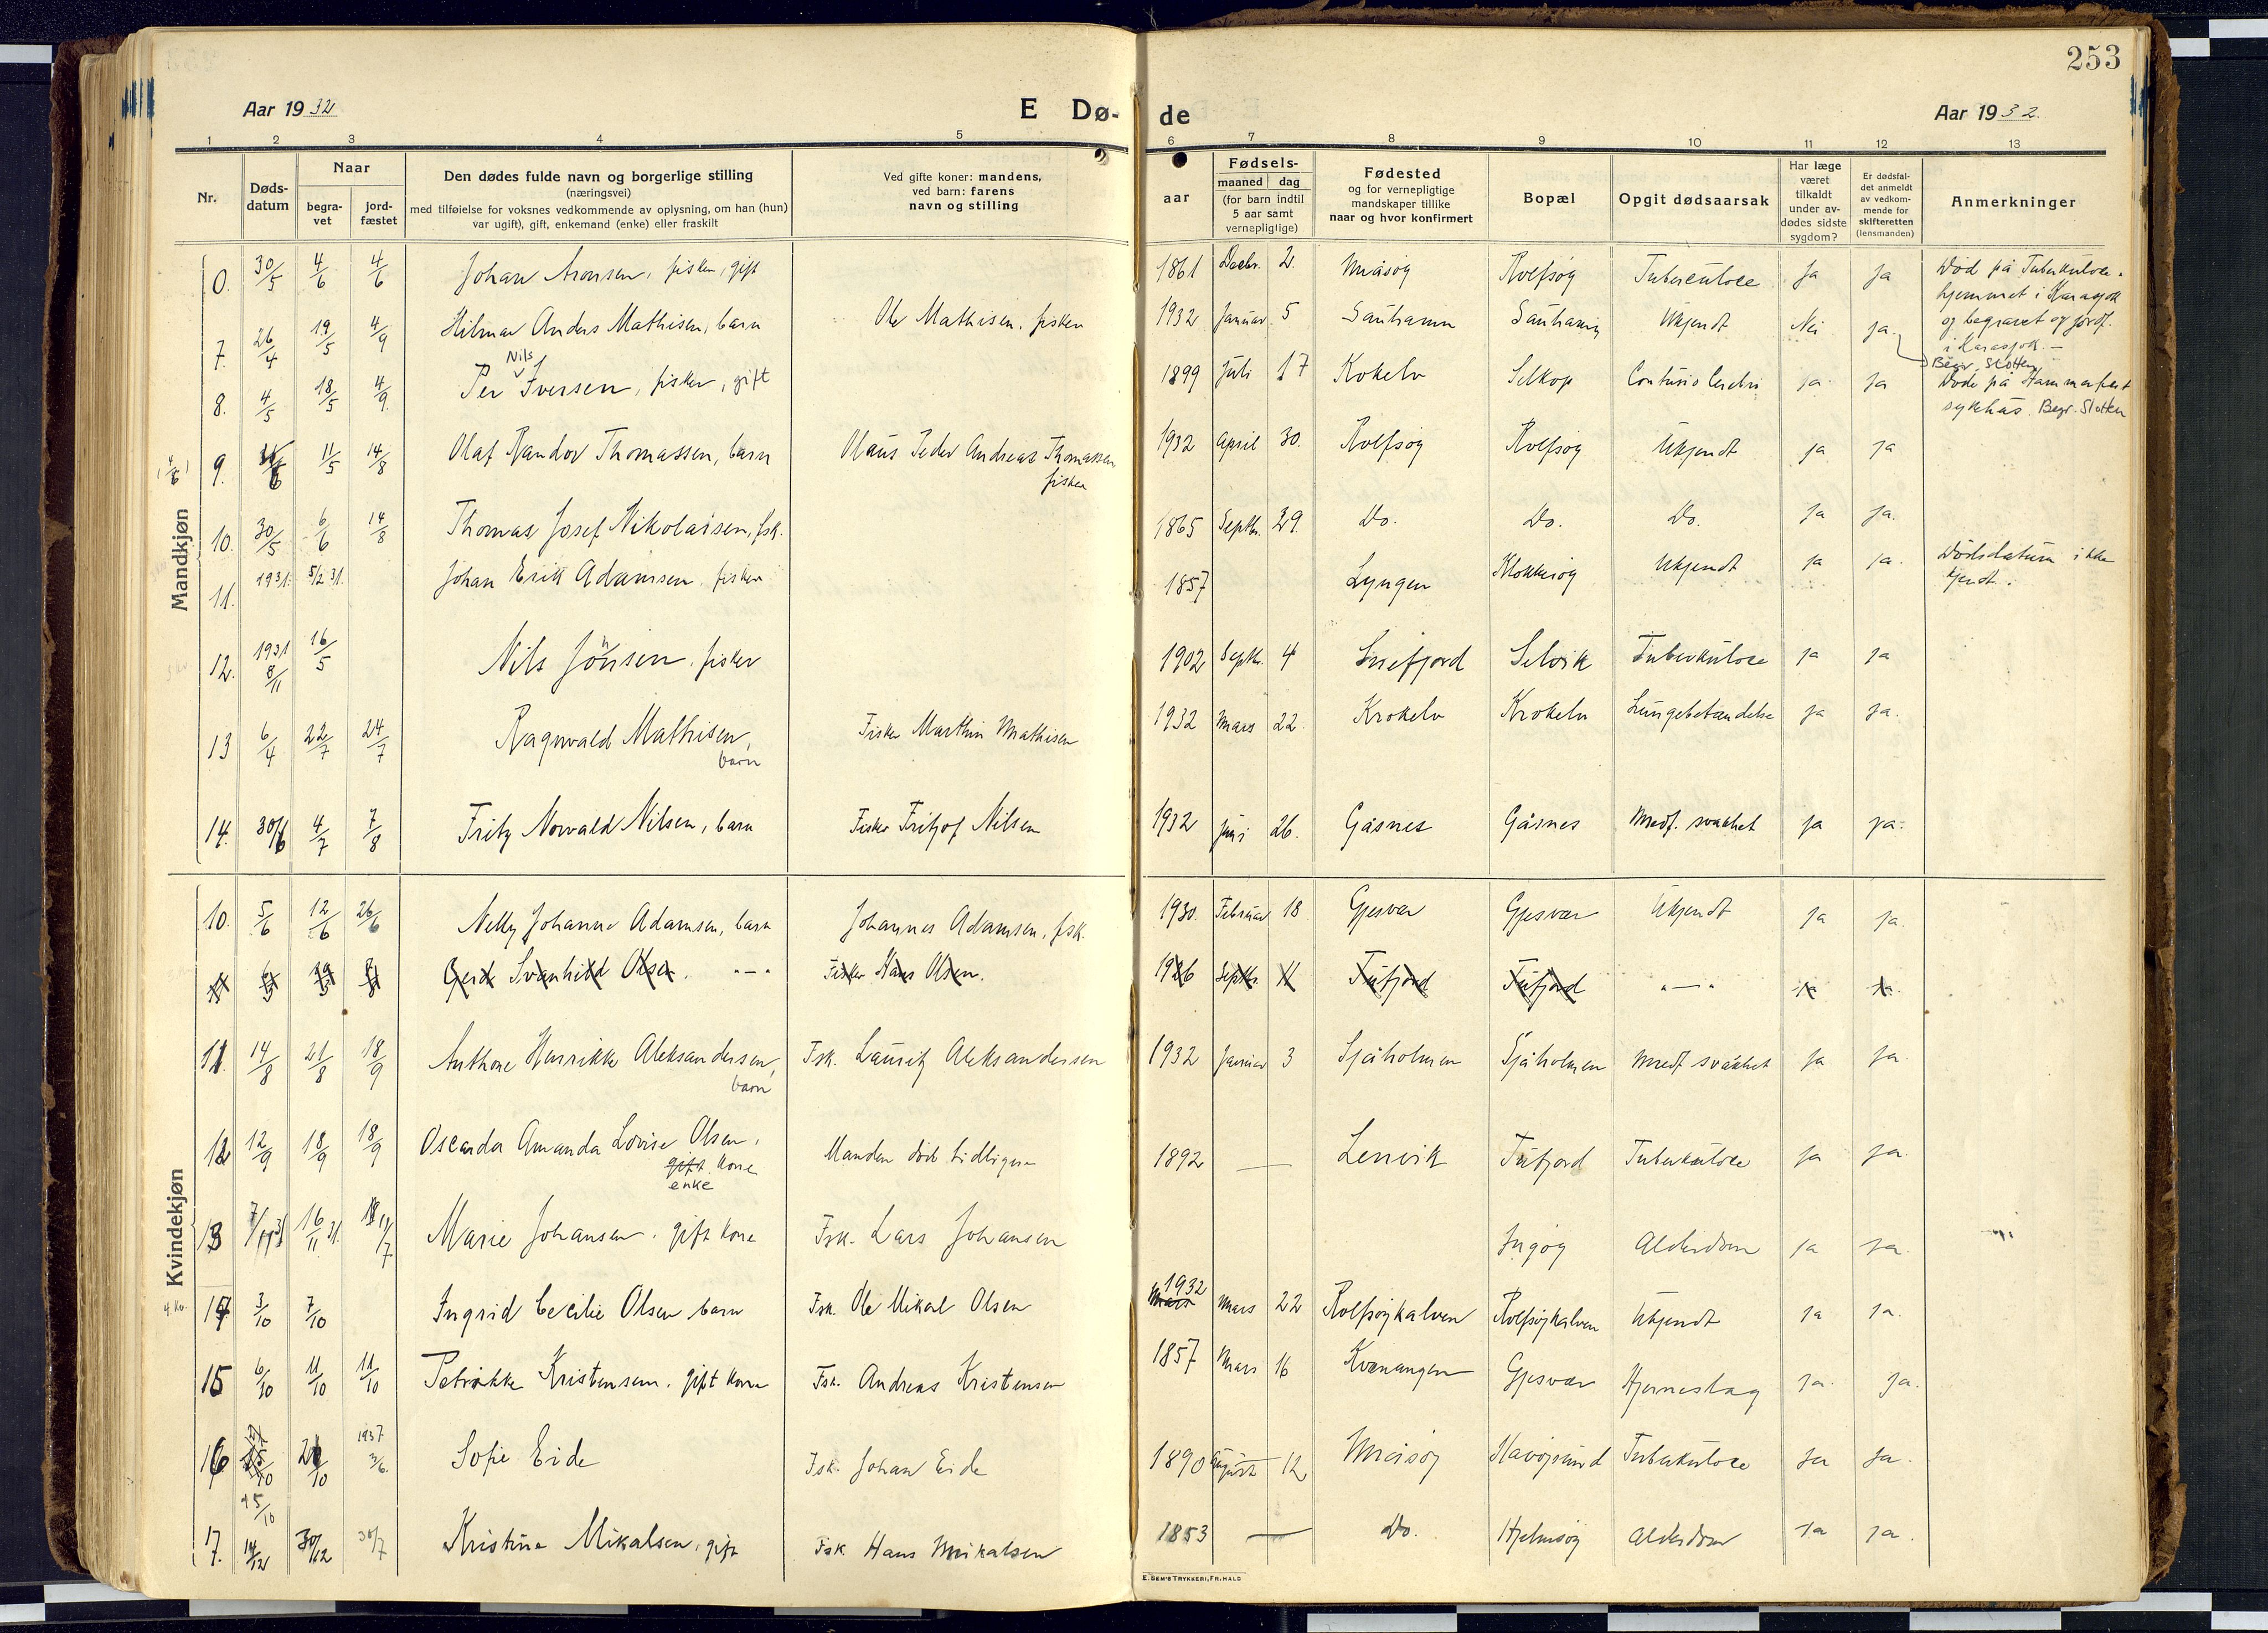 253
Aar 1932
E Dø-
de
Aar 1932.
1 2 3 4 5 6 7 8 9 10 11 12 13
Nr.
Døds-
datum
Naar
begra-
vet
jord-
fæstet
Den dødes fulde navn og borgerlige stilling
(næringsvei)
med tilføielse for voksnes vedkommende av oplysning, om han (hun)
var ugift), gift, enkemand (enke) eller fraskilt
Ved gifte koner: mandens,
ved barn: farens
navn og stilling
aar
Fødsels-
maaned dag
(for barn indtil
5 aar samt
vernepligtige)
Fødested
og for vernepligtige
mandskaper tillike
naar og hvor konfirmert
Bopæl
Opgit dødsaarsak
Har læge
været
tilkaldt
under av-
dødes sidste
sygdom?
Er dødsfal-
det anmeldt
av vedkom-
mende for
skifteretten
(lensmanden)
Anmerkninger
Mandkjøn
0. 30/5 4/6 4/6 Johan Aronsen, fisker, gift 1861 Decbr. 2. Måsøy Rolfsøy Tuberculose Ja Ja Død på Tuberkulose-
hjemmet i Karasjok
og begravet og jordf.
i Karasjok. —
7. 26/4 19/5 4/9 Hilmar Anders Mathisen, barn Ole Mathisen, fisker 1932 Januar 5 Sauhamn Sauhamn Ukjendt Nei ja. Begr. Slotten
8. 4/5 18/5 4/9 Per Nils Iversen, fisker, gift 1899 Juli 17 Kokelv Selkop Contusio Cerebri ja ja Døde på Hammerfest
sykehus. Begr. Slotten
9. 11/5 14/8 Olaf Randor Thomassen, barn Olaus Peder Andreas Thomassen
fisker 1932 April 30. Rolfsøy Rolfsøy Ukjendt ja ja
10. 30/5 6/6 14/8 Thomas Josef Nikolaisen, fsk. 1865 Septbr. 29. Do. Do. Do. Ja ja.
11. 1931. 5/2 31. Johan Erik Adamsen, fisker 1857 Lyngen Ukjendt ja ja. Dødsdatum ikke
kjendt.
12. 1931 8/11 16/5 Nils Jonsen, fisker 1902 Septbr. 4 Snefjord Selvik Tuberkulose ja ja
13 6/4 22/7 24/7 Ragnvald Mathisen,
barn Fisker Marthin Mathisen 1932 Mars 22. Krokelv Krokelv Lungebetændelse ja ja.
14. 30/6 4/7 7/8 Fritz Norvald Nilsen, barn Fisker Fritjof Nilsen 1932 Juni 26. Gåsnes Gåsnes Medf. svakhet ja ja.
Kvindekjøn
10. 5/6 12/6 26/6 Nelly Johanne Adamsen, barn Johannes Adamsen, fsk. 1930. Februar 18 Gjesvær Gjesvær Ukjendt ja ja.
Gerd Svanhild Olsen. "—" Fisker Hans Olsen. 1926 Septbr. 11 Tufjord Tufjord "—" ja ja.
11. 14/8 21/8 18/9 Anthone Henrikke Aleksandersen,
barn Fsk. Lauritz Aleksandersen 1932 Januar 3 Sjåholmen Sjåholmen Medf svakhet Ja ja
12 12/9 18/9 18/9 Oscarda Amanda Lovise Olsen,
gift kone
enke Manden død tidligere 1892 — Lenvik Tufjord Tuberkulose ja ja.
13 7/11 31 16/11 31. Marie Johansen, gift kone Fsk. Lars Johansen Ingøy Alderdom ja ja.
14 3/10 7/10 Ingrid Cecilie Olsen barn Fsk. Ole Mikal Olsen 1932 Mars 22 Rolfsøykalven Rolfsøykalven Ukjendt ja ja.
15 6/10 11/10 11/10 Petrikke Kristensen, gift kone Fsk. Andreas Kristensen 1857 Mars 16 Kvænangen Gjesvær Hjerneslag ja ja.
16 15/10 1937 3/6. Sofie Eide Fsk. Johan Eide 1890 August 12 Måsøy Havøysund Tuberkulose ja ja.
17. 14/12 30/12 30/7 Kristine Mikalsen, gift Fsk. Hans Mikalsen 1853 — Do. Hjelmsøy Alderdom ja ja.
E. SEM'S TRYKKERI, FR. HALD